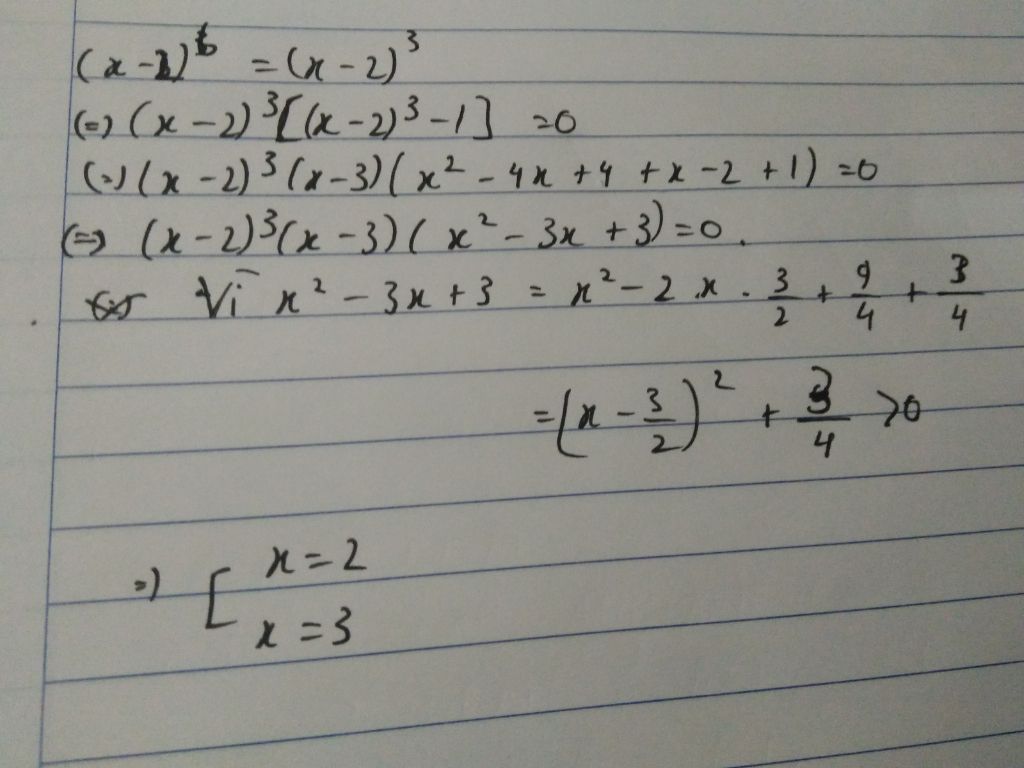 (x-2)^6 = (x-2)^3
(=) (x-2)^3[(x-2)^3-1] =0
(=) (x-2)^3(x-3)(x^2-4x+4+x-2+1) =0
(=) (x-2)^3(x-3)(x^2-3x+3)=0.
Vì x^2-3x+3 = x^2-2.x.3/2+9/4+3/4
=(x-3/2)^2+3/4>0
=) [ x=2
x=3